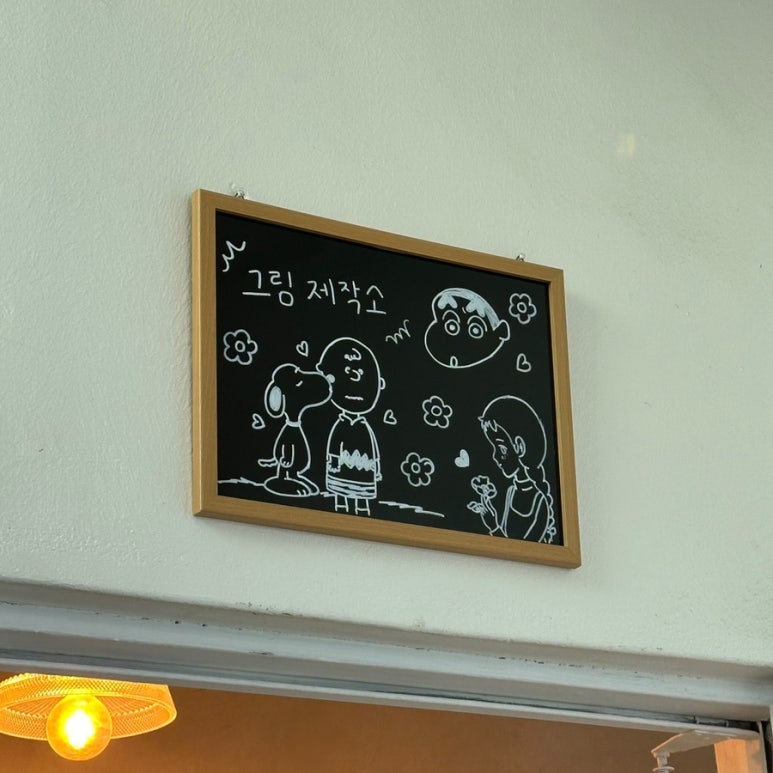 그림 제작소